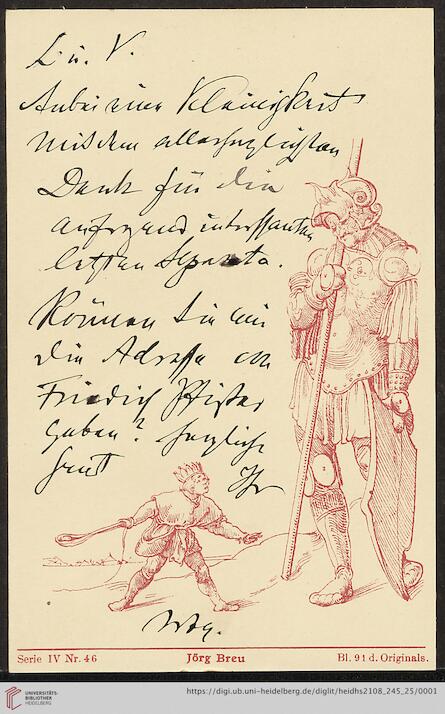 L. u. V.
Anbei eine Kleinigkeit
mit dem allerherzlichsten
Dank für die
aufregend interessanten
letzten Separata.
Können Sie mir
die Adresse von
Friedrich Pfister
geben? Herzlichen
Gruß Ihr
Wbg.
Serie IV Nr. 46
Jörg Breu
Bl. 91 d. Originals.
UNIVERSITÄTS-
BIBLIOTHEK
HEIDELBERG
https://digi.ub.uni-heidelberg.de/diglit/heidhs2108_245_25/0001